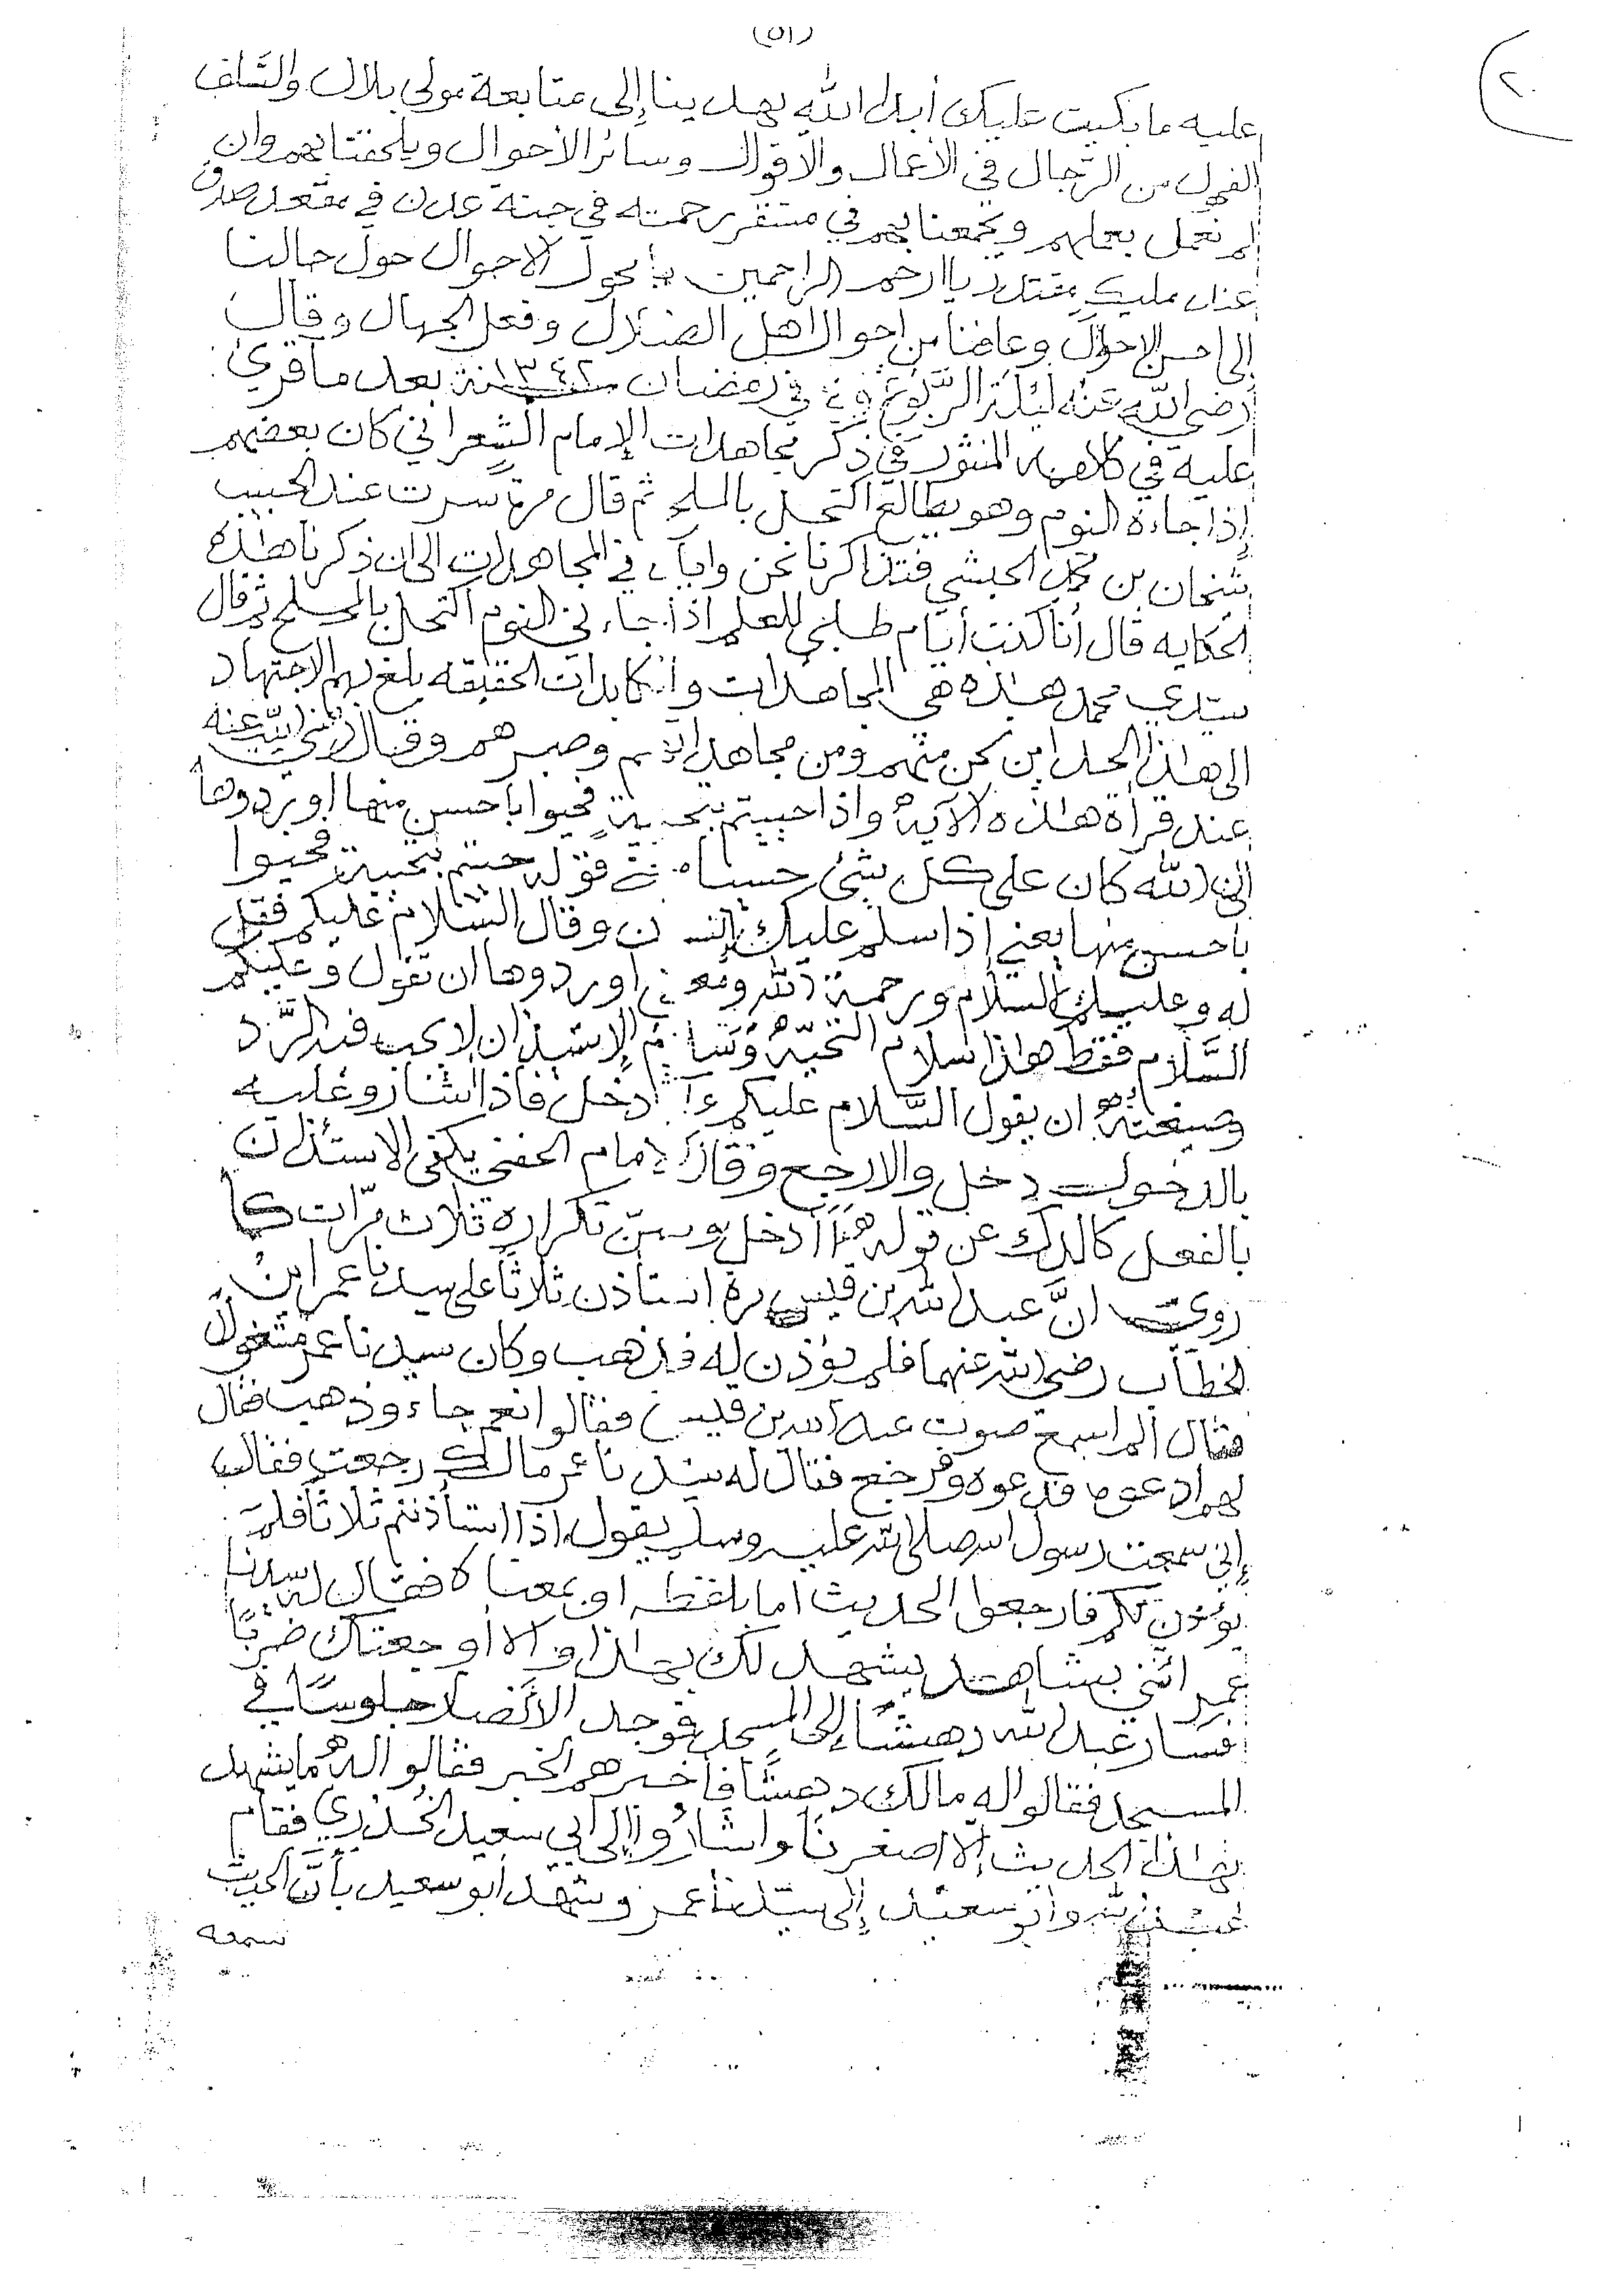 (٥١)
٢٠
عليه ما بكيت عليك أبدا الله يهدينا إلى متابعة مولى بلال والسلف
الفحول من الرجال في الأعمال والاقوال وسائر الأحوال ويلحقنا بهم وان
لم نعمل بعملهم ويجمعنا بهم في مستقر رحمته في جنة عدن في مقعد صدق
عند مليك مقتدر يا ارحم الراحمين يا محول الاحوال حول حالنا
إلى احسن الاحوال وعافنا من احوال اهل الضلال وفعل الجهال وقال
رضي الله عنه ليلة الربوع في رمضان سنة ١٣٤٢ بعد ما قرئ
عليه في كلامه المنثور في ذكر مجاهدات الإمام الشعراني كان بعضهم
إذا جاءه النوم وهو يطالع اكتحل بالملح ثم قال مرة سرت عند الحبيب
شيخان بن محمد الحبشي فتذاكرنا نحن واياه في المجاهدات الى ان ذكرنا هذه
الحكايه قال أنا كنت أيام طلبي للعلم اذا جاءني النوم اكتحل بالملح ثم قال
سيدي محمد هذه هي المجاهدات والمكابدات الحقيقه بلغ بهم الاجتهاد
الى هذا الحد اين نحن منهم ومن مجاهداتهم وصبرهم وقال رضي الله عنه
عند قرأة هذه الآية واذا حييتم بتحية فحيوا بأحسن منها او ردوها
ان الله كان على كل شئ حسيبا قوله حييتم بتحية فحيوا
باحسن منها يعني إذا سلم عليك وقال السلام عليكم فقل
له وعليك السلام ورحمة الله ومعنى اوردوها ان تقول وعليكم
السلام فقط هذا سلام التحية الإستيذان لا يجب فيه الرد
وصيغته ان يقول السلام عليكم أ أدخل فاذا اشاروعليه
بالدخول دخل والا رجع وقال الامام الحفني يكفي الاستئذان
بالفعل كالدك عن قوله أأدخل وسن تكراره ثلاث مرات كما
روي انَّ عبد الله بن قيس مرة استأذن ثلاثاً على سيدنا عمر ابن
الخطاب رضي الله عنهما فلم يؤذن له فذهب وكان سيدنا عمر مشغول
فقال الم اسمع صوت عبد الله بن قيس فقالوا نعم جاء وذهب فقال
لهم ادعوه فدعوه ورجع فقال له سيدنا عمر مالك رجعت فقال
إني سمعت رسول الله صلى الله عليه وسلم يقول اذا استأذنتم ثلاثاً فلم
يؤذن لكم فارجعوا الحديث اما بلفظه او بمعناه فقال له سيدنا
عمر ائتني بشاهد يشهد لك بهذا والا أوجعتك ضرباً
فسار عبد الله دهشاً إلى المسجد فوجد الأنصار جلوساً في
المسجد فقالوا له مالك دهشاً فأخبرهم الخبر فقالوا له ما يشهد
بهذا الحديث إلا اصغرنا واشاروا إلى أبي سعيد الخدري فقام
عبد الله وابو سعيد إلى سيدنا عمر وشهد ابو سعيد بأن الحديث
سمعه